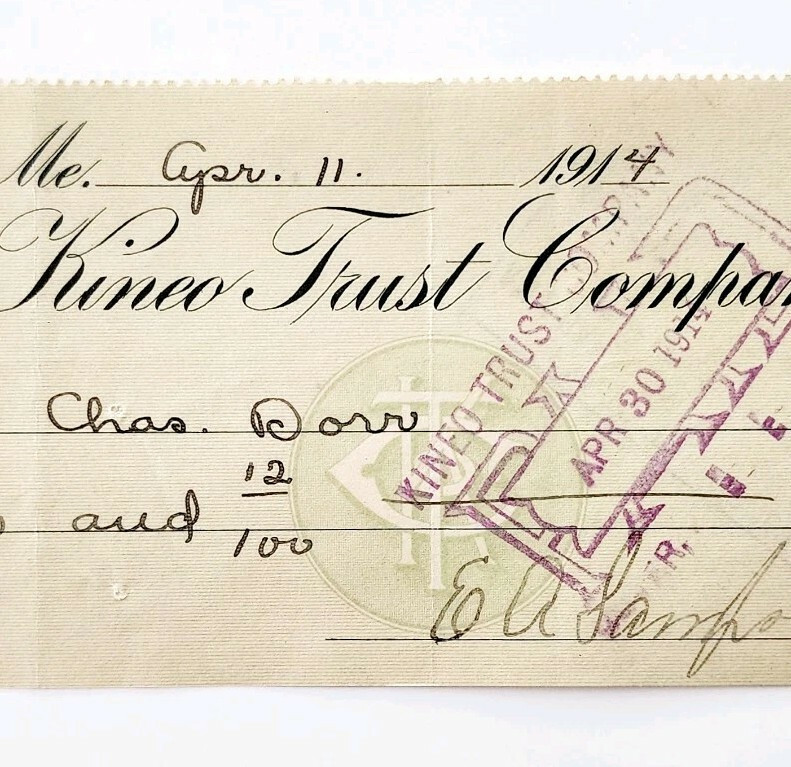 Me. Apr. 11. 1914
Kineo Trust Compa
Chas. Dorr
and 12/100
E A Samps
KINEO TRUST COMPANY
PAID
APR 30 1914